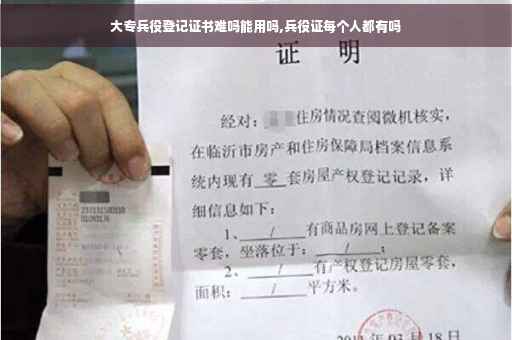 大专兵役登记证书难吗能用吗,兵役证每个人都有吗
证 明
经对: 住房情况查阅微机核实,
在临沂市房产和住房保障局档案信息系
统内现有 零 套房屋产权登记记录, 详
细信息如下:
1、 / 有商品房网上登记备案
零套, 坐落位于: / ;
2、 / 有产权登记房屋零套,
面积: / 平方米。
03 月 18 日